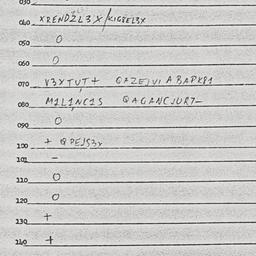 030
040 XRENDŽL3X/KIGBEL3X
050 O
060 O
070 V3XTUT+ QAZEJVI ABAPK81
080 M1L1NC1S QAGANCJUR7-
090 O
100 + QPEJS3X
101 -
110 O
120 O
130 +
140 +